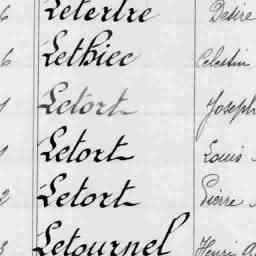 6 Letertre Désiré
6 Lethiec Célestin
1 Letort Joseph
1 Letort Louis
2 Letort Pierre
3 Letournel Henri A